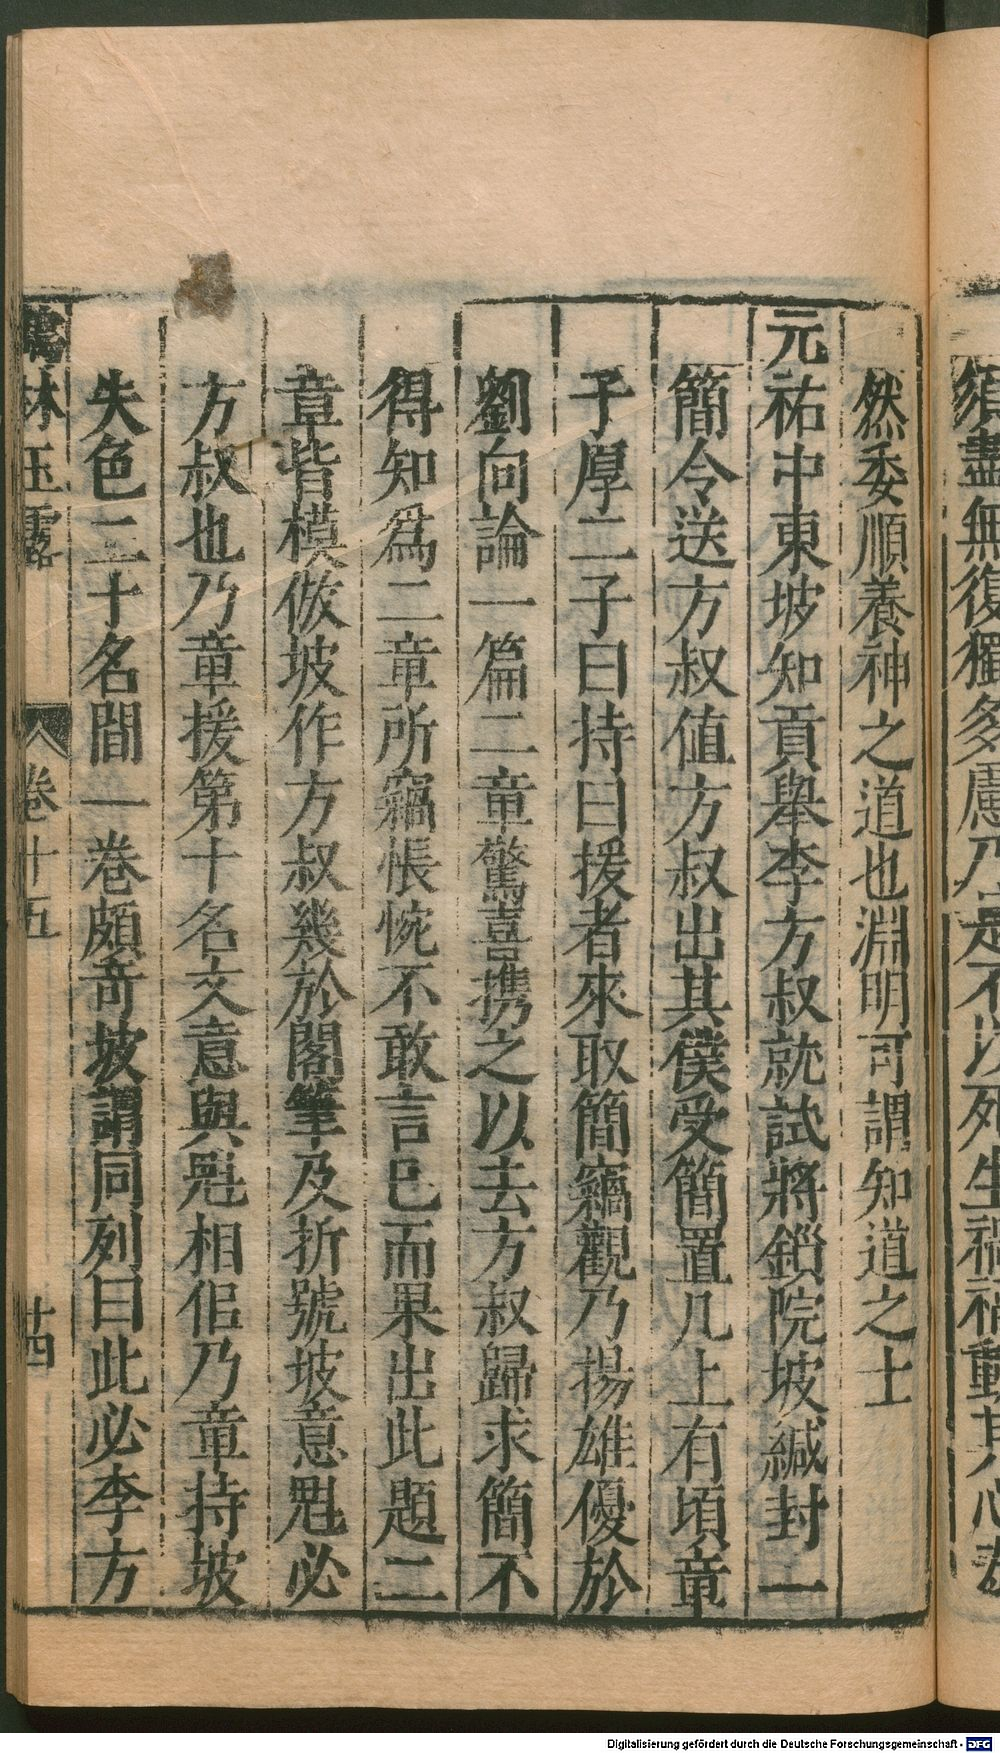 須盡無復獨多慮乃是不以死生禍福動其心泰
然委順養神之道也淵明可謂知道之士
元祐中東坡知貢舉李方叔就試將鎖院坡緘封一
簡令送方叔值方叔出其僕受簡置几上有頃章
子厚二子曰持曰援者來取簡竊觀乃揚雄優於
劉向論一篇二章驚喜携之以去方叔歸求簡不
得知爲二章所竊悵惋不敢言已而果出此題二
章皆模倣坡作方叔幾於閣筆及折號坡意魁必
方叔也乃章援第十名文意與魁相侣乃章持坡
失色二十名間一卷頗奇坡謂同列曰此必李方
林玉露 卷十五 十四
Digitalisierung gefördert durch die Deutsche Forschungsgemeinschaft - DFG